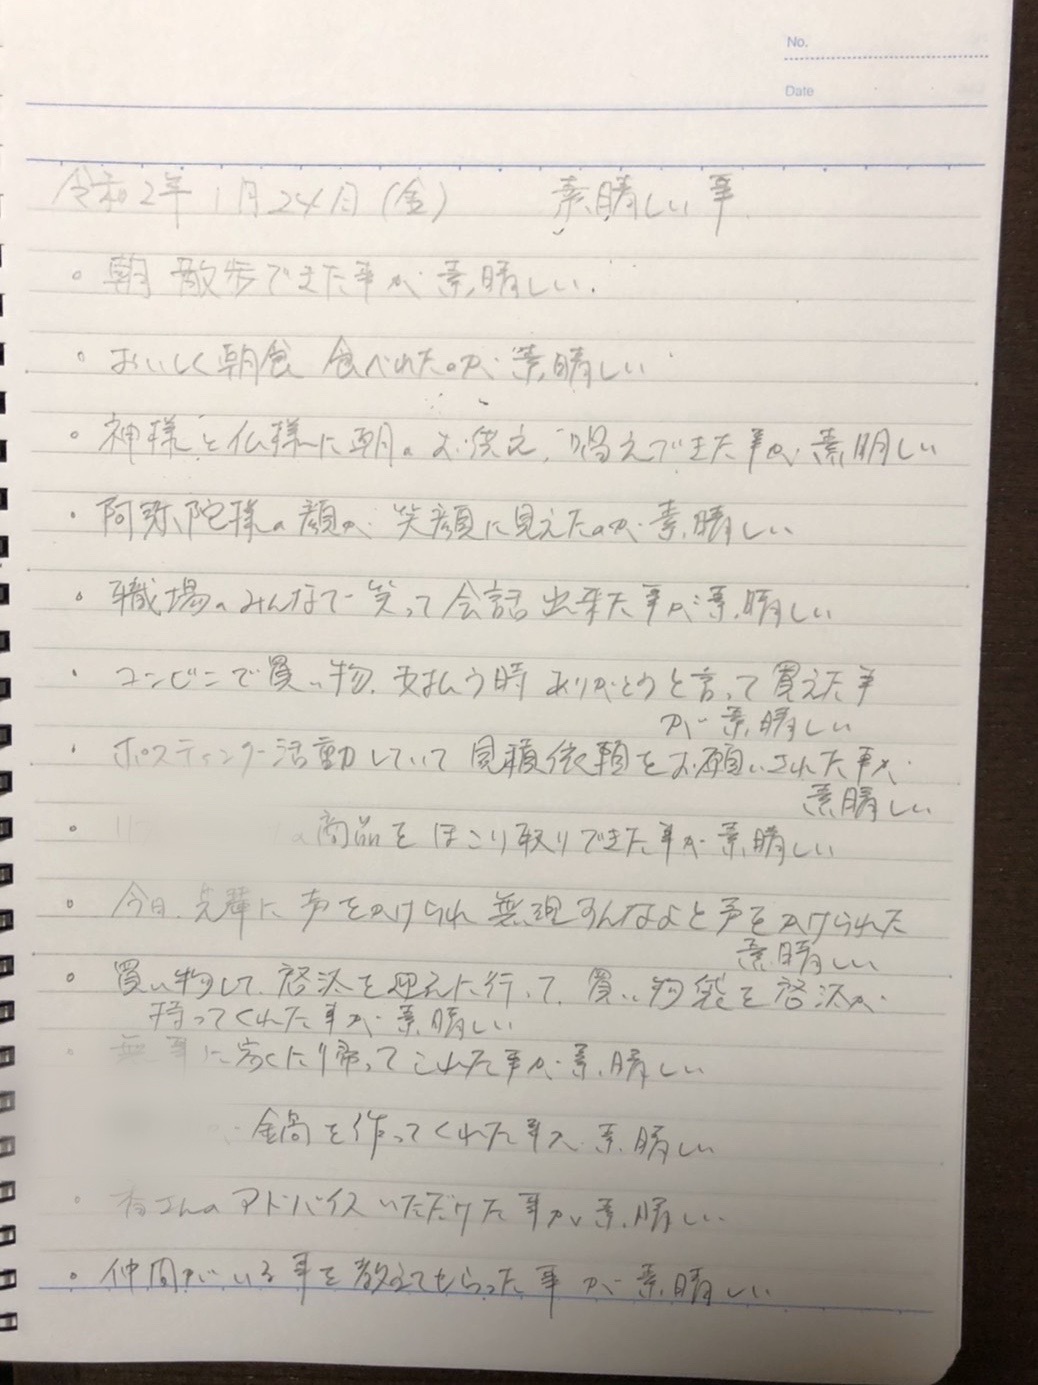 No.
Date
令和2年 1月24日(金) 素晴しい事
朝 散歩できた事が素晴しい.
おいしく朝食 食べれたのが素晴しい
神様と仏様に朝のお供え、唱えできた事が素晴しい
阿弥陀様の顔が笑顔に見えたのが素晴しい
職場のみんなで笑って会話出来た事が素晴しい
コンビニで買い物、支払う時ありがとうと言って買えた事
が素晴しい
ポスティング活動していて見積依頼をお願いされた事が
素晴しい
の商品をほこり取りできた事が素晴しい
今日、先輩に声をかけられ無理すんなよと声をかけられた
素晴しい
買い物して、啓汰を迎えに行って、買い物袋を啓汰が
持ってくれた事が素晴しい
無事に家に帰ってこれた事が素晴しい
鍋を作ってくれた事が素晴しい
さんのアドバイスいただけた事が素晴しい
仲間がいる事を教えてもらった事が素晴しい